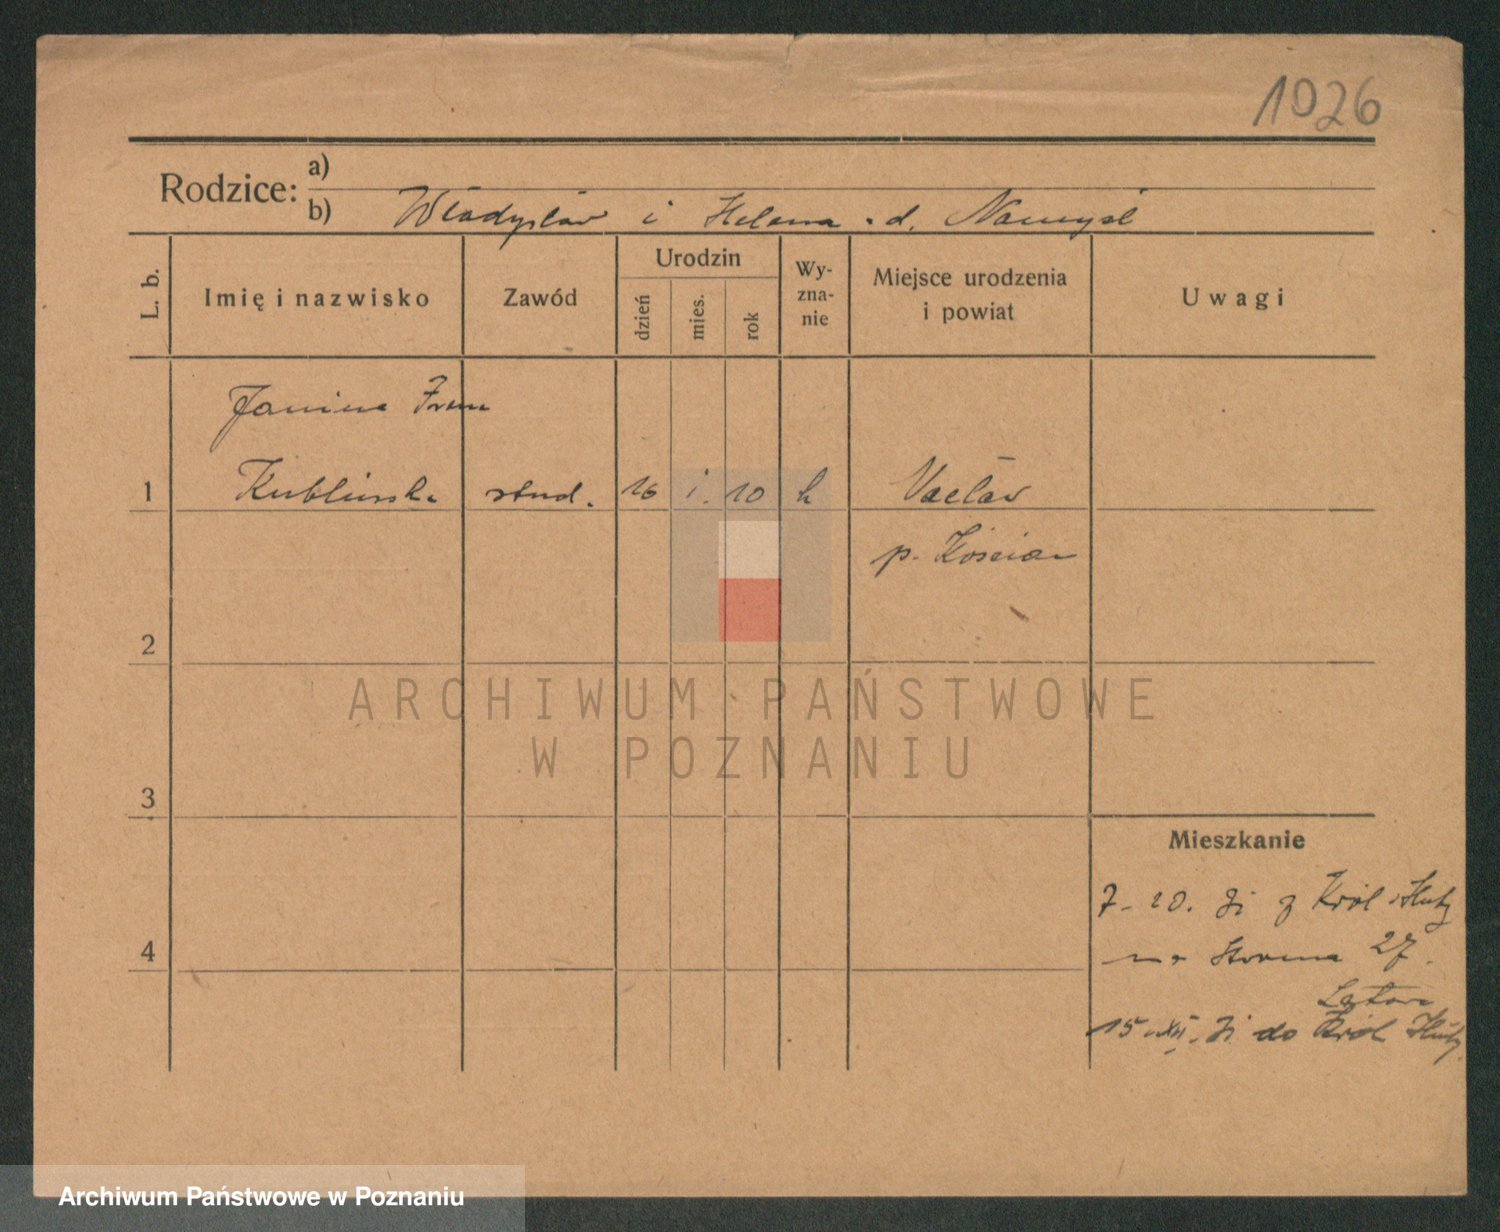 1026
Rodzice: a)
b) Władysław i Helena z d. Namysł
L. b.
Imię i nazwisko
Zawód
Urodzin
dzień
mies.
rok
Wy-
zna-
nie
Miejsce urodzenia
i powiat
Uwagi
Janina Irena
1 Kublińska stud. 16 i. 10 k Vacłav
p. Kościan
2
ARCHIWUM PAŃSTWOWE
W POZNANIU
3
Mieszkanie
7. 10. 31 z Król. Huty
4
na 27.
15. XII. 31 do Król Huty
Archiwum Państwowe w Poznaniu